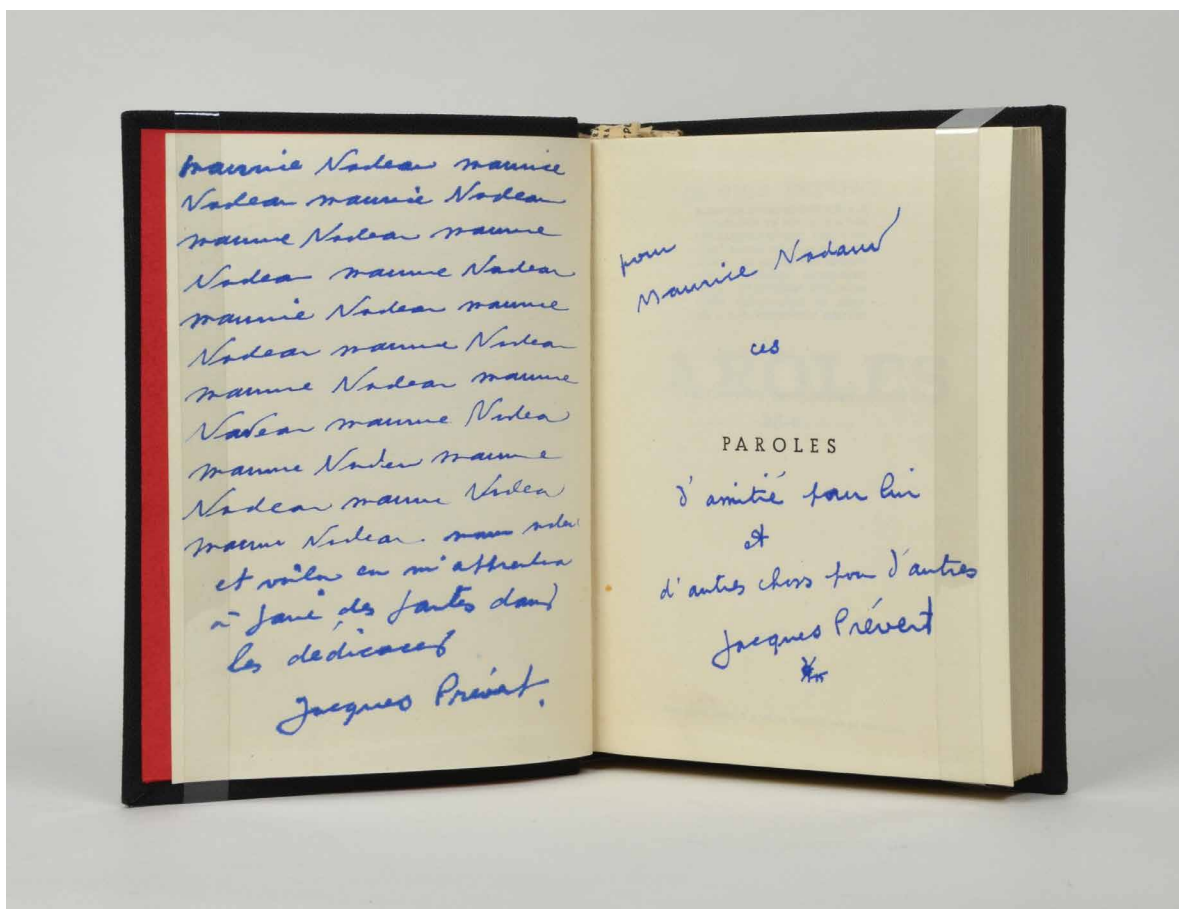 maurice Nadeau maurice
Nadeau maurice Nadeau
maurice Nadeau maurice
Nadeau maurice Nadeau
maurice Nadeau maurice
Nadeau maurice Nadeau
maurice Nadeau maurice
Nadeau maurice Nadeau
maurice Nadeau maurice
Nadeau maurice Nadeau
maurice Nadeau. maurice nadeau
et voilà ça m'apprendra
à faire des fautes dans
les dédicaces
Jacques Prévert.
pour
Maurice Nadaud
ces
PAROLES
d'amitié pour lui
et
d'autres choses pour d'autres
Jacques Prévert